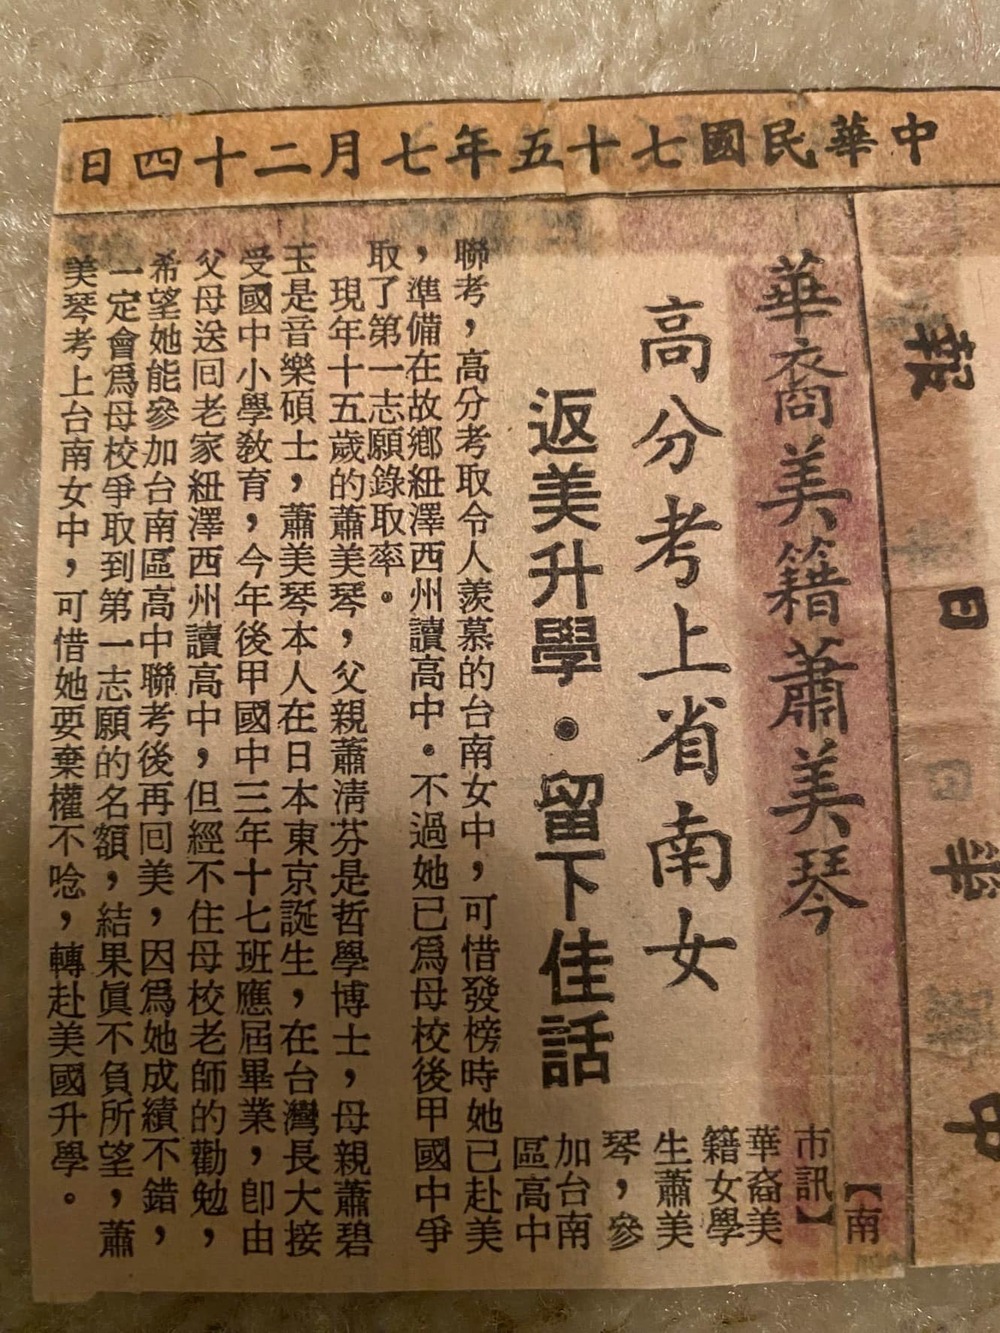 中華民國七十五年七月二十四日
中華日報
華裔美籍蕭美琴
高分考上省南女
返美升學・留下佳話
【南
市訊】
華裔美
籍女學
生蕭美
琴，參
加台南
區高中
聯考，高分考取令人羨慕的台南女中，可惜發榜時她已赴美
，準備在故鄉紐澤西州讀高中。不過她已爲母校後甲國中爭
取了第一志願錄取率。
現年十五歲的蕭美琴，父親蕭清芬是哲學博士，母親蕭碧
玉是音樂碩士，蕭美琴本人在日本東京誕生，在台灣長大接
受國中小學教育，今年後甲國中三年十七班應屆畢業，卽由
父母送回老家紐澤西州讀高中，但經不住母校老師的勸勉，
希望她能參加台南區高中聯考後再回美，因爲她成績不錯，
一定會爲母校爭取到第一志願的名額，結果眞不負所望，蕭
美琴考上台南女中，可惜她要棄權不唸，轉赴美國升學。